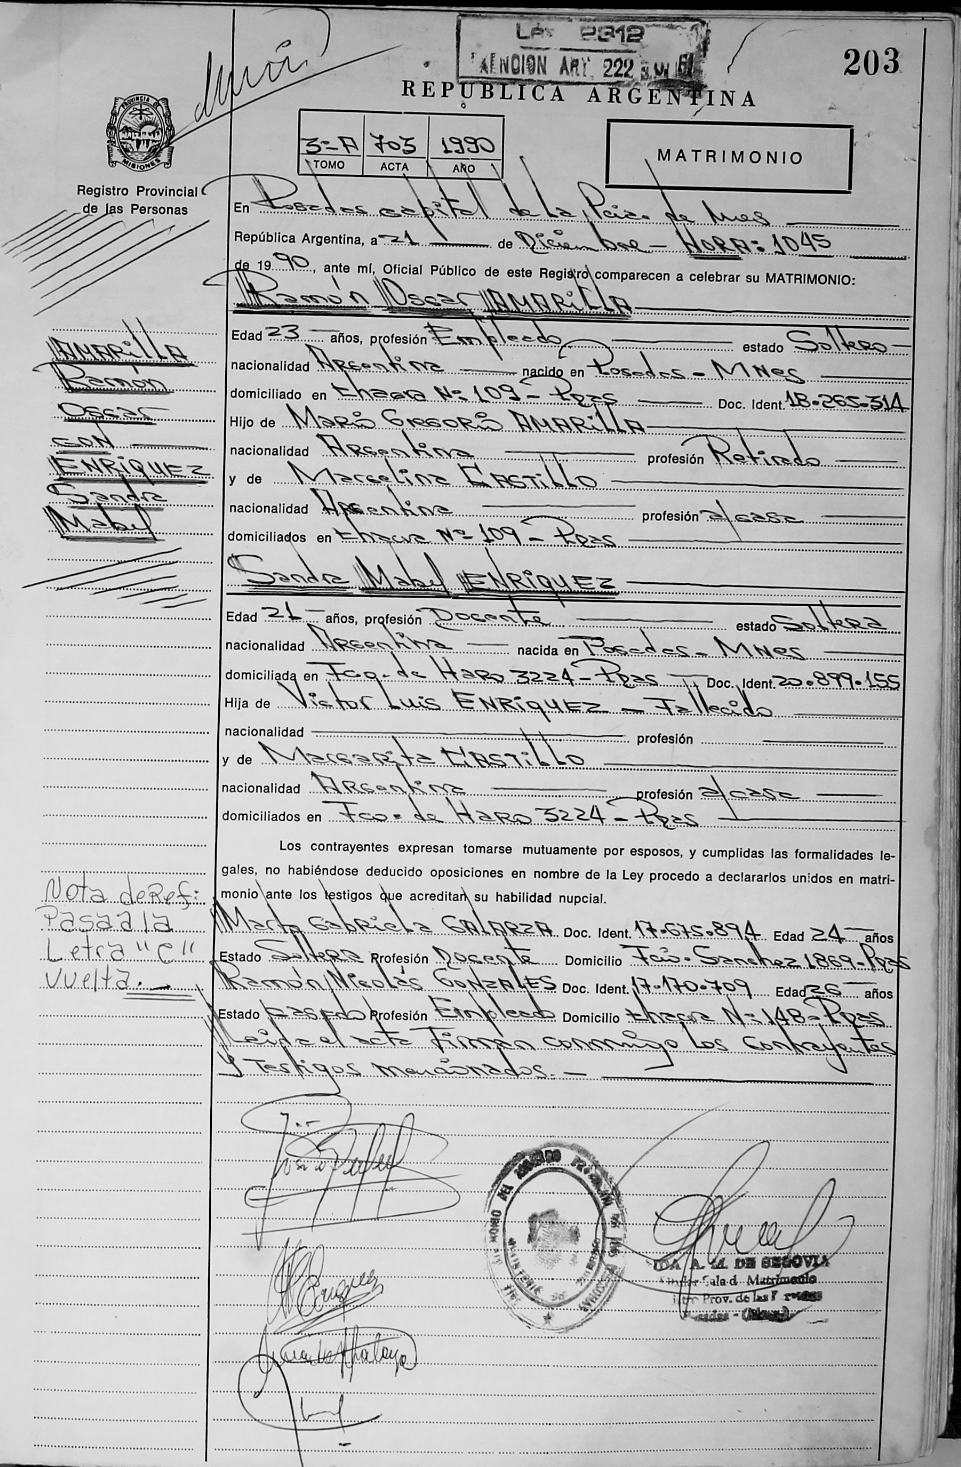 Ley 2312
203
REPUBLICA ARGENTINA
PROVINCIA
MISIONES
3=A 703 1990
TOMO ACTA AÑO
MATRIMONIO
Registro Provincial
de las Personas
En Posadas capital de la Pcia. de Mnes
República Argentina, a 21 de Diciembre - HORA: 1045
de 1990, ante mí, Oficial Público de este Registro comparecen a celebrar su MATRIMONIO:
Ramón Oscar AMARILLA
AMARILLA
Ramón
Oscar
con
ENRIQUEZ
Sandra
Mabel
Edad 23 años, profesión Empleado estado Soltero
nacionalidad Argentina nacido en Posadas - MNes
domiciliado en Chacra Nº 109 - Pdas Doc. Ident. 18.265.314
Hijo de Mario Gregorio AMARILLA
nacionalidad Argentina profesión Retirado
y de Marcelina CASTILLO
nacionalidad Argentina profesión a/casa
domiciliados en Chacra Nº 109 - Pdas
Sandra Mabel ENRIQUEZ
Edad 21 años, profesión Docente estado Soltera
nacionalidad Argentina nacida en Posadas - MNes
domiciliada en Fco. de Haro 3224 - Pdas Doc. Ident. 20.899.155
Hija de Victor Luis ENRIQUEZ - Fallecido
nacionalidad profesión
y de Margarita CASTILLO
nacionalidad Argentina profesión a/casa
domiciliados en Fco. de Haro 3224 - Pdas
Los contrayentes expresan tomarse mutuamente por esposos, y cumplidas las formalidades le-
gales, no habiéndose deducido oposiciones en nombre de la Ley procedo a declararlos unidos en matri-
monio ante los testigos que acreditan su habilidad nupcial.
Nota de Ref:
Pasa a la
Letra "C"
vuelta.
Marta Gabriela GALARZA Doc. Ident. 17.675.894 Edad 24 años
Estado Soltera Profesión Docente Domicilio Fcio. Sanchez 1869 - Pdas
Ramón Nicolás GONZALES Doc. Ident. 17.170.709 Edad 26 años
Estado Casado Profesión Empleado Domicilio Chacra Nº 148 - Pdas
Leida el acta Firman conmigo los contrayentes
y Testigos mencionados. -
IDA A. M. DE SEGOVIA
Sala d Matrimonio
Prov. de las
Posadas - (Misiones)